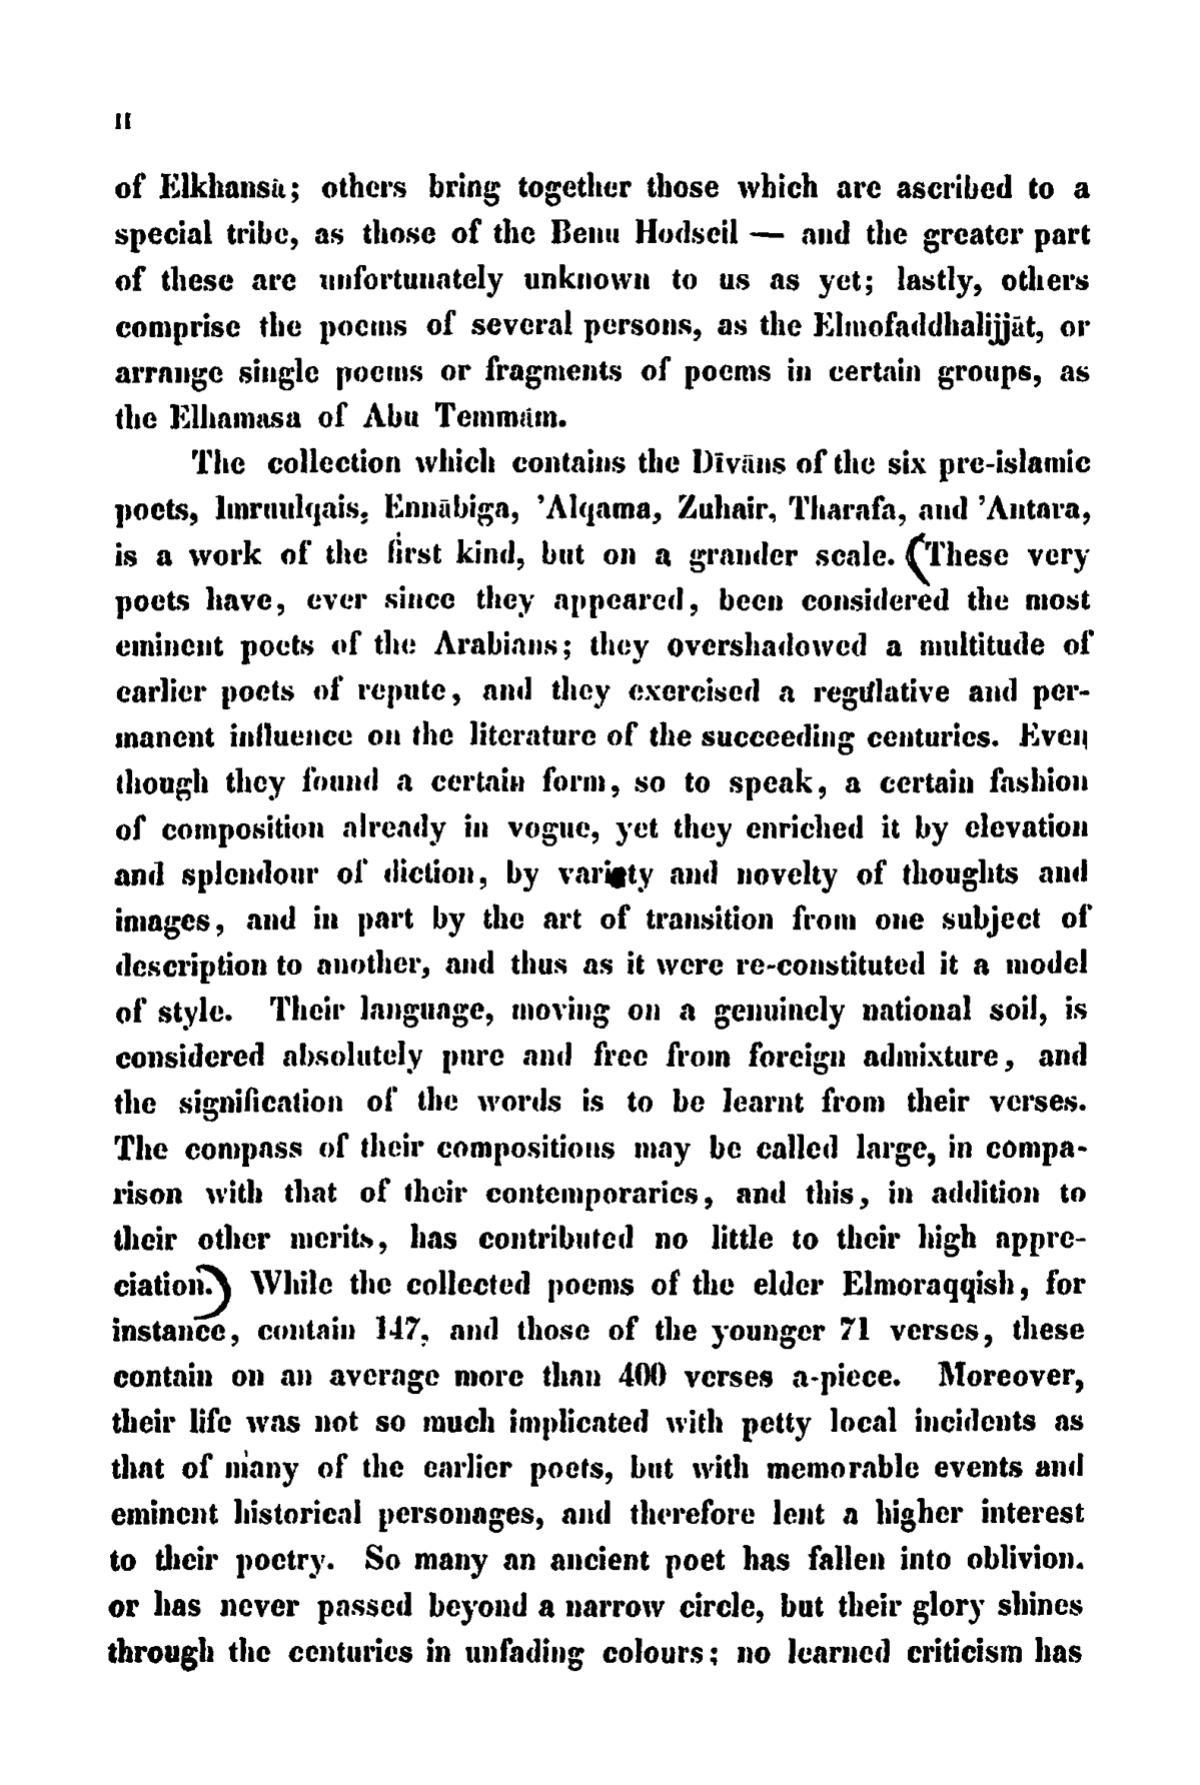 II
of Elkhansâ; others bring together those which are ascribed to a
special tribe, as those of the Benu Hodseil — and the greater part
of these are unfortunately unknown to us as yet; lastly, others
comprise the poems of several persons, as the Elmofaddhalijjāt, or
arrange single poems or fragments of poems in certain groups, as
the Elhamasa of Abu Temmâm.
The collection which contains the Dīvāns of the six pre-islamic
poets, Imruulqais, Ennābiga, ’Alqama, Zuhair, Tharafa, and ’Antara,
is a work of the first kind, but on a grander scale. (These very
poets have, ever since they appeared, been considered the most
eminent poets of the Arabians; they overshadowed a multitude of
earlier poets of repute, and they exercised a regulative and per-
manent influence on the literature of the succeeding centuries. Even
though they found a certain form, so to speak, a certain fashion
of composition already in vogue, yet they enriched it by elevation
and splendour of diction, by variety and novelty of thoughts and
images, and in part by the art of transition from one subject of
description to another, and thus as it were re-constituted it a model
of style. Their language, moving on a genuinely national soil, is
considered absolutely pure and free from foreign admixture, and
the signification of the words is to be learnt from their verses.
The compass of their compositions may be called large, in compa-
rison with that of their contemporaries, and this, in addition to
their other merits, has contributed no little to their high appre-
ciation.) While the collected poems of the elder Elmoraqqish, for
instance, contain 147, and those of the younger 71 verses, these
contain on an average more than 400 verses a-piece. Moreover,
their life was not so much implicated with petty local incidents as
that of many of the earlier poets, but with memorable events and
eminent historical personages, and therefore lent a higher interest
to their poetry. So many an ancient poet has fallen into oblivion.
or has never passed beyond a narrow circle, but their glory shines
through the centuries in unfading colours; no learned criticism has